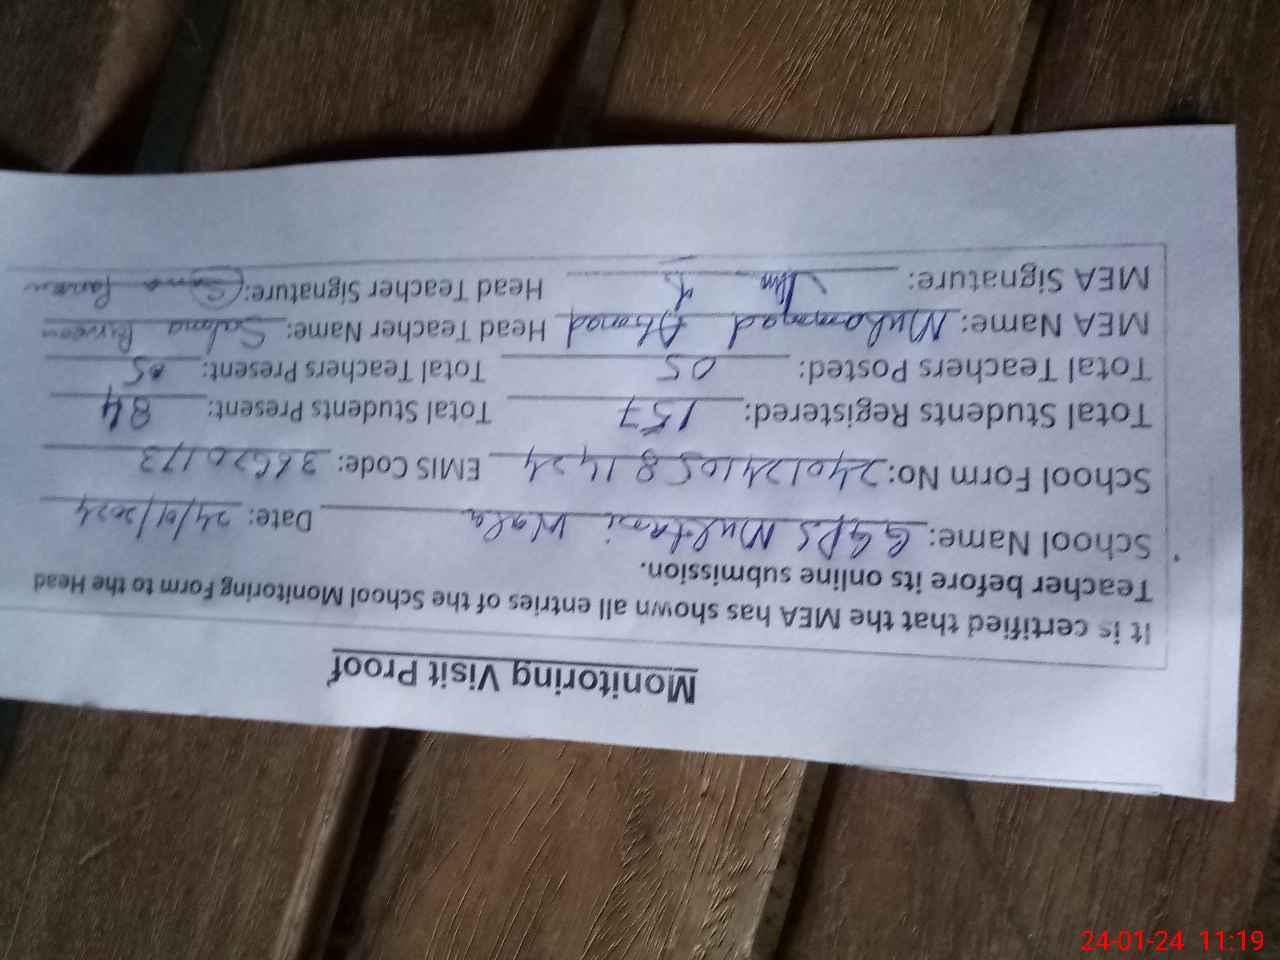 Monitoring Visit Proof
It is certified that the MEA has shown all entries of the School Monitoring Form to the Head
Teacher before its online submission.
School Name: GGPS Multani Wala Date: 24/01/2024
School Form No: 24012410581424 EMIS Code: 31620173
Total Students Registered: 157 Total Students Present: 84
Total Teachers Posted: 05 Total Teachers Present: 05
MEA Name: Muhammad Ahmad Head Teacher Name: Salma Parveen
MEA Signature: Head Teacher Signature:
24-01-24 11:19